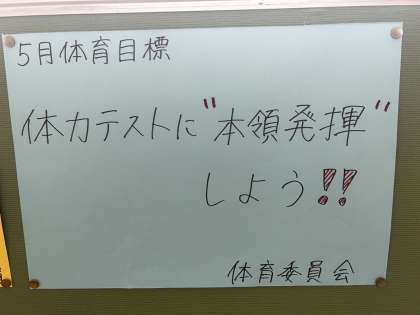 5月体育目標
体力テストに"本領発揮"
しよう!!
体育委員会